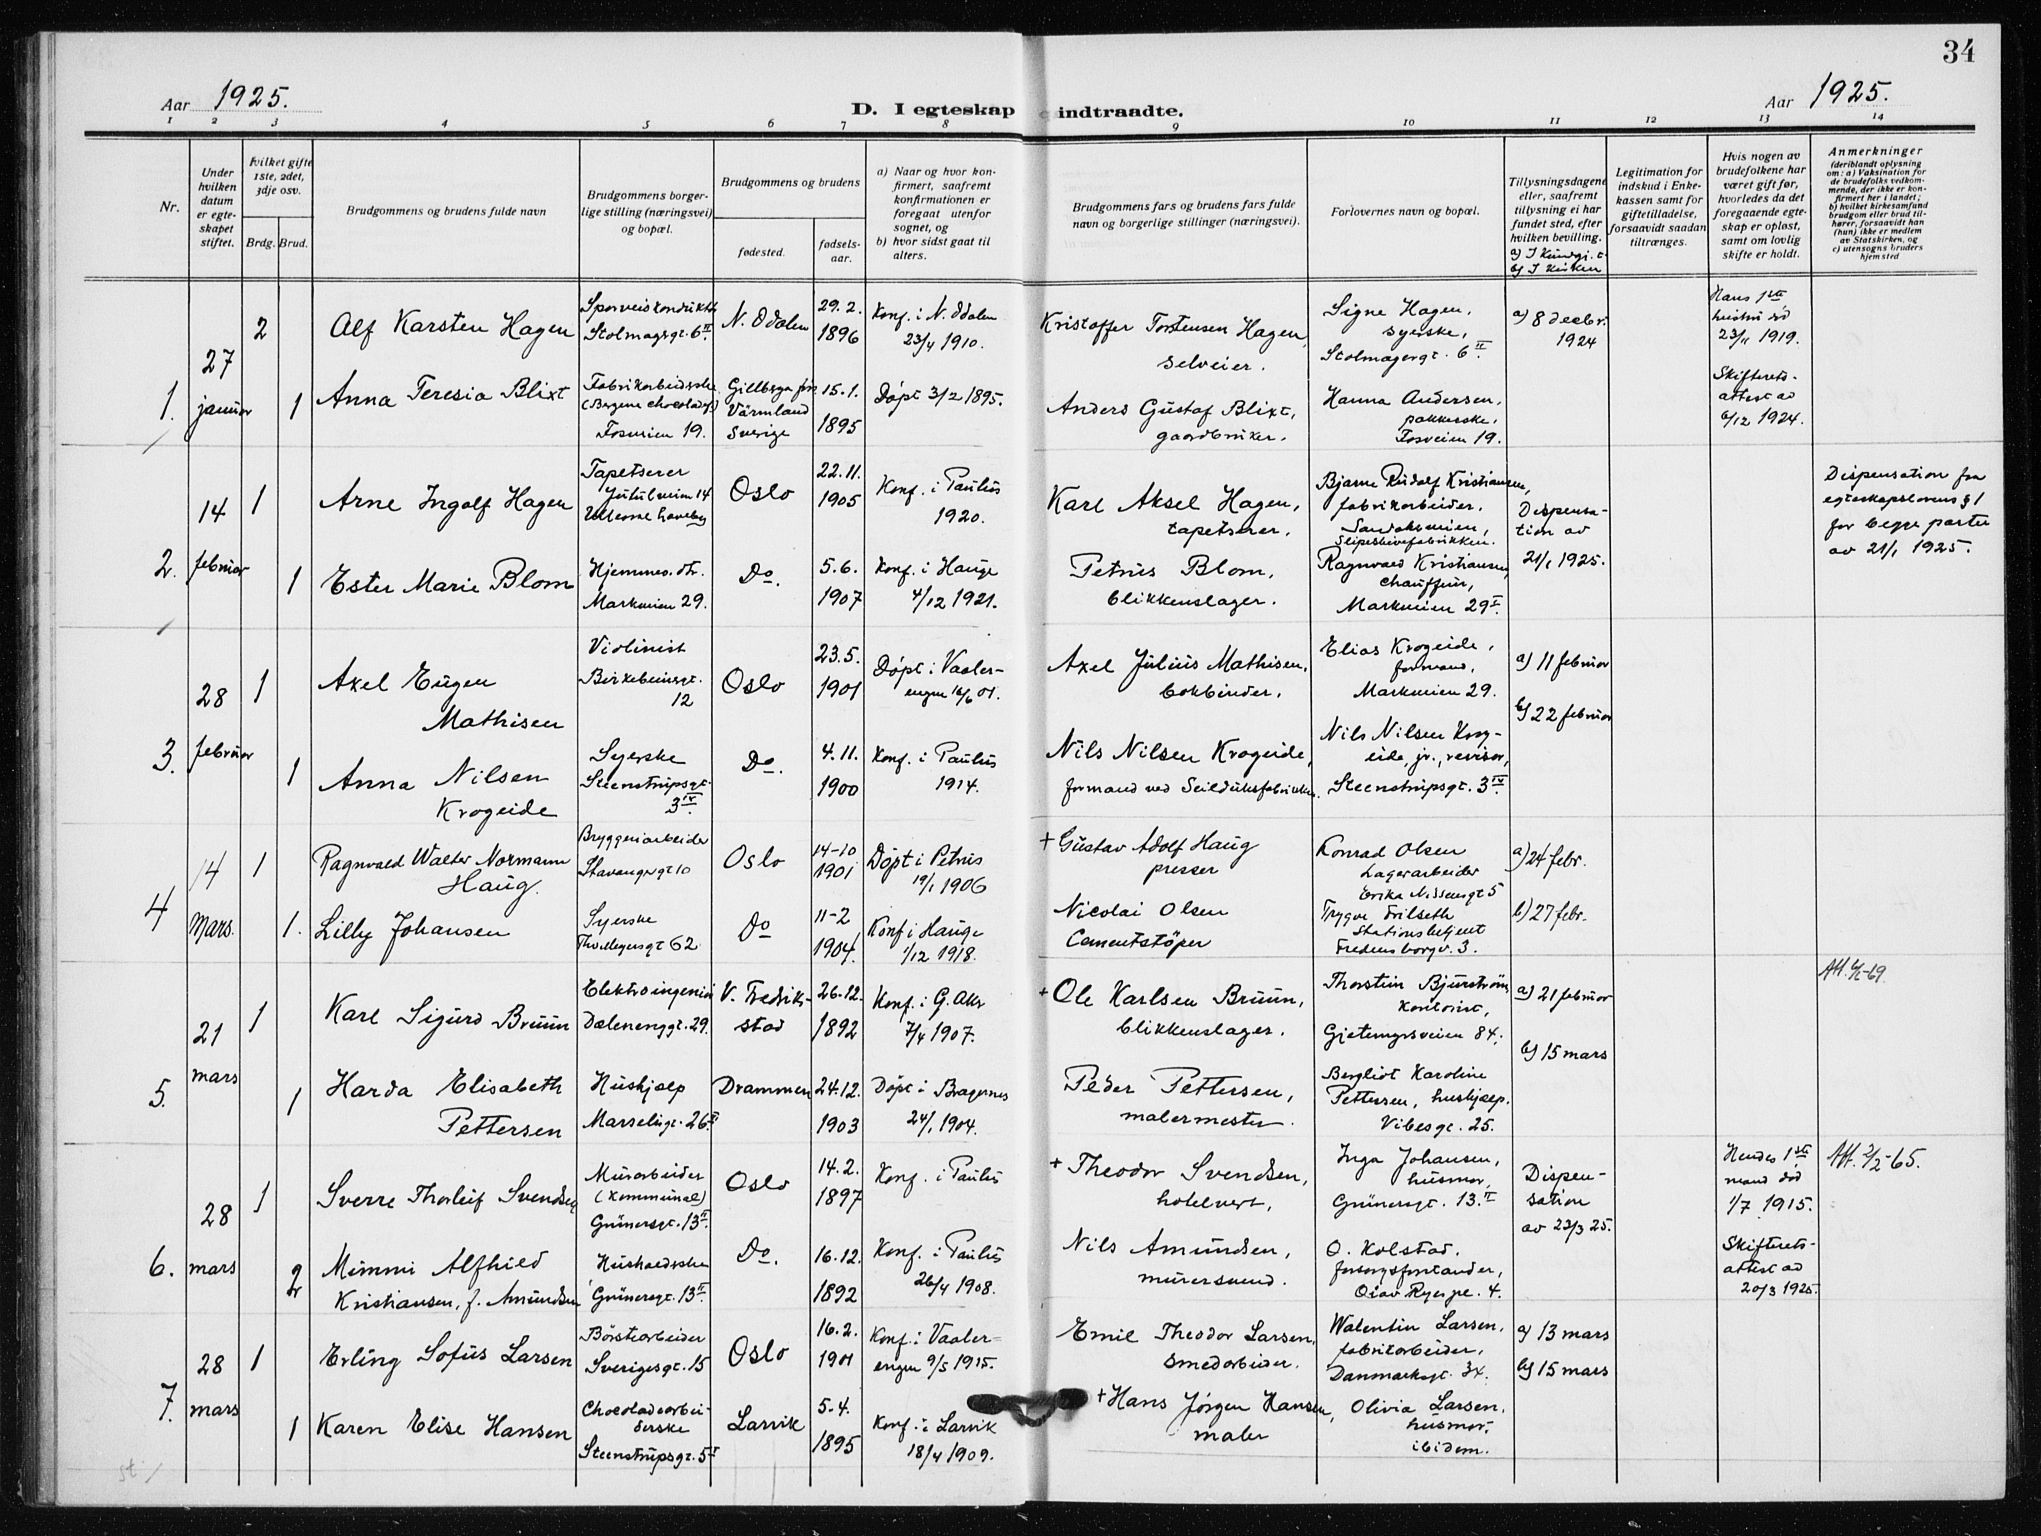 34
Aar 1925.
D. I egteskap indtraadte.
Aar 1925.
1 2 3 4 5 6 7 8 9 10 11 12 13 14
Nr.
Under
hvilken
datum
er egte-
skapet
stiftet.
hvilket gifte
1ste, 2det,
3dje osv.
Brdg. Brud.
Brudgommens og brudens fulde navn
Brudgommens borger-
lige stilling (næringsvei)
og bopæl.
Brudgommens og brudens
fødested.
fødsels-
aar.
a) Naar og hvor kon-
firmert, saafremt
konfirmationen er
foregaat utenfor
sognet, og
b) hvor sidst gaat til
alters.
Brudgommens fars og brudens fars fulde
navn og borgerlige stillinger (næringsvei).
Forlovernes navn og bopæl.
Tillysningsdagene
eller, saafremt
tillysning ei har
fundet sted, efter
hvilken bevilling.
b) I Kirken
Legitimation for
indskud i Enke-
kassen samt for
giftetilladelse,
forsaavidt saadan
tiltrænges.
Hvis nogen av
brudefolkene har
været gift før,
hvorledes da det
foregaaende egte-
skap er opløst,
samt om lovlig
skifte er holdt.
Anmerkninger
(deriblandt oplysning
om: a) Vaksination for
de brudefolks vedkom-
mende, der ikke er kon-
firmert her i landet;
b) hvilket kirkesamfund
brudgom eller brud til-
hører, forsaavidt han
(hun) ikke er medlem
av Statskirken, og
c) utensogns bruders
hjemsted
1.
27
januar
2
Alf Karsten Hagen
Sporveiskonduktør
Stolmagergt. 6 II.
N. Odalen
29.2.
1896
Konf. i N. Odalen
23/4 1910.
Kristoffer Torstensen Hagen,
selveier.
Signe Hagen,
syerske,
Stolmagergt. 6 II.
a) 8 decbr.
1924
Hans 1ste
hustru død
23/11 1919.
Skifterets-
attest ad
6/12 1924.
1
Anna Teresia Blixt
Fabrikarbeiderske
(Bergene chocoladef.)
Fosveien 19.
Gillberga
Värmland
Sverige
15.1.
1895
Døpt 3/2 1895.
Anders Gustaf Blixt,
gaardbruker.
Hanna Andersen,
pakkerske,
Fosveien 19.
2.
14
februar
1
Arne Ingolf Hagen
Tapetserer
Jutulveien 14
Ullevaal haveby
Oslo
22.11.
1905
Konf. i Paulus
1920.
Karl Aksel Hagen,
tapetserer.
Bjarne Rudolf Kristiansen,
fabrikarbeider.
Sandakerveien,
Slipeskivefabrikken.
Dispensa-
tion av
21/1 1925.
Dispensation fra
egteskapslovens § 1
for begge parter
av 21/1 1925.
1
Ester Marie Blom
Hjemmev. dtr.
Markveien 29.
Do.
5.6.
1907
Konf. i Hauge
4/12 1921.
Petrus Blom,
blikkenslager.
Ragnvald Kristiansen,
chauffeur,
Markveien 29 I.
3.
28
februar
1
Axel Eugen
Mathisen
Violinist
Birkebeinergt.
12
Oslo
23.5.
1901
Døpt i Vaaler-
engen 16/6 01.
Axel Julius Mathisen,
bokbinder.
Elias Krogeide,
formand,
Markveien 29.
a) 11 februar
b) 22 februar
1
Anna Nilsen
Krogeide
Syerske
Steenstrupsgt.
3 IV.
Do.
4.11.
1900
Konf. i Paulus
1914.
Nils Nilsen Krogeide,
formand ved Seildukfabrikken.
Nils Nilsen Krog-
eide, jr., revisor,
Steenstrupsgt. 3 IV.
4
14
Mars.
1
Ragnvald Walter Normann
Haug.
Bryggeriarbeider
Stavangergt 10
Oslo
14-10
1901
Døpt i Petrus
19/1 1906
+ Gustav Adolf Haug
presser
Konrad Olsen
Lagerarbeider
Erika Nissensgt 5
a) 24 febr.
b) 27 febr.
1.
Lilly Johansen
Syerske
Thv. Meyersgt 62
Do
11-2
1904.
Konf i Hauge
1/12 1918.
Nicolai Olsen
Cementstøper
Trygve Frilseth
Stationsbetjent
Fredensborgv. 3.
5.
21
mars
1
Karl Sigurd Bruun
Elektroingeniør
Dælenenggt. 29.
V. Fredrik-
stad
26.12.
1892
Konf. i G. Aker
7/4 1907.
+ Ole Karlsen Bruun,
blikkenslager.
Thorstein Bjurstrøm,
kontorist,
Gjetemyrsveien 84.
a) 21 februar
b) 15 mars
1
Harda Elisabeth
Pettersen
Hushjælp
Marseliigt. 26 II.
Drammen
24.12.
1903
Døpt i Bragernes
24/1 1904.
Peder Pettersen,
malermester.
Bergliot Karoline
Pettersen, hushjælp.
Vibesgt. 25.
6.
28
mars
1
Sverre Thorleif Svendsen
Murarbeider
(kommunal)
Grünersgt. 13 II.
Oslo
14.2.
1897
Konf. i Paulus
+ Theodor Svendsen,
hotelvert.
Inga Johansen,
husmor,
Grünersgt. 13. II
Dispen-
sation
av 23/3 25.
Hendes 1ste
mand død
1/7 1915.
Skifterets-
attest ad
20/3 1925.
Att. 2/2-65.
2
Mimmi Alfhild
Kristiansen, f. Amundsen
Husholderske
Grünersgt. 13 II.
Do.
16.12.
1892
Konf. i Paulus
26/4 1908.
Nils Amundsen,
murersvend.
O. Kolstad.
forsorgsforstander,
Olav Ryespl. 4.
7.
28
mars
1
Erling Sofus Larsen
Børstearbeider
Sverigesgt. 15
Oslo
16.2.
1901
Konf. i Vaaler-
engen 9/5 1915.
Emil Theodor Larsen,
smedarbeider.
Walentin Larsen,
fabrikarbeider,
Danmarksgt. 34.
a) 13 mars
b) 15 mars
1
Karen Elise Hansen
Chocoladearbei-
derske
Steenstrupsgt. 5 I
Larvik
5.4.
1895
Konf. i Larvik
18/4 1909.
+ Hans Jørgen Hansen,
maler
Olivia Larsen,
husmor,
ibidem.